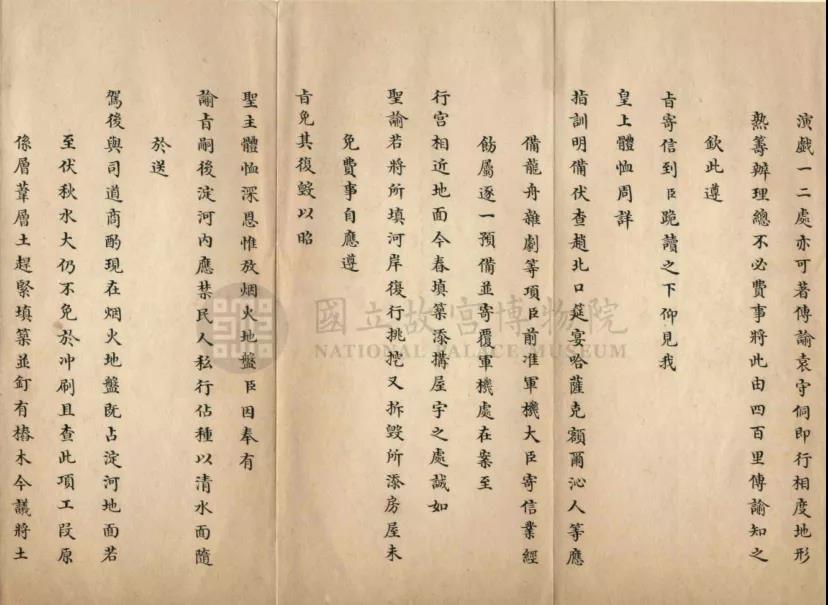 演戲一二處亦可著傳諭袁守侗即行相度地形
熟籌辦理總不必費事將此由四百里傳諭知之
欽此遵
旨寄信到臣跪讀之下仰見我
皇上體恤周詳
指訓明備伏查趙北口筵宴哈薩克額爾沁人等應
備龍舟雜劇等項臣前准軍機大臣寄信業經
飭屬逐一預備並寄覆軍機處在案至
行宮相近地面今春填築添搆屋宇之處誠如
聖諭若將所填河岸復行挑挖又拆毀所添房屋未
免費事自應遵
旨免其復毀以昭
聖主體恤深恩惟放烟火地盤臣因奉有
諭旨嗣後淀河內應禁民人私行佔種以清水面隨
於送
駕後與司道商酌現在烟火地盤既占淀河地面若
至伏秋水大仍不免於冲刷且查此項工段原
係層葦層土趕緊填築並釘有樁木今議將土
國立故宮博物院
NATIONAL PALACE MUSEUM